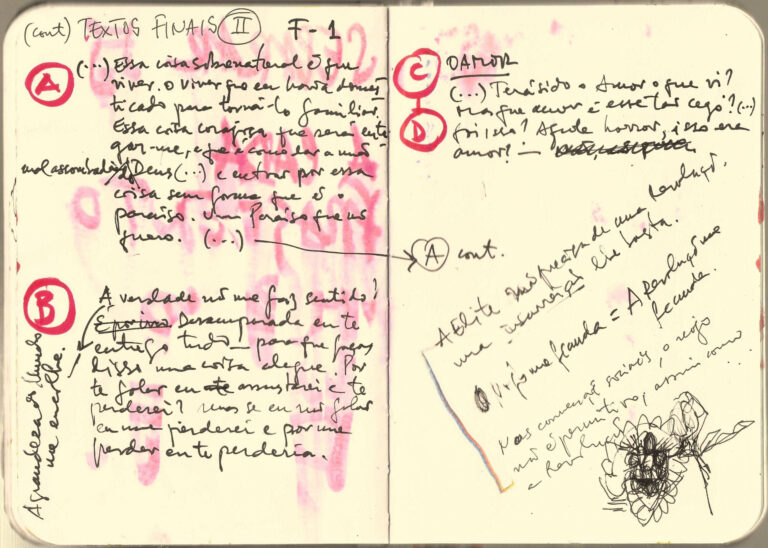 (cont) TEXTOS FINAIS II F-1
A
(...) Essa coisa sobrenatural é que
viver. O viver que eu havia domes
ticado para torná-lo familiar.
Essa coisa corajosa que será entre
gar-me, e que é como dar a mão
mal assombrada do Deus (...) e entrar por essa
coisa sem forma que é o
paraíso. Um Paraíso que não
quero. (...)
B
A verdade não me faz sentido?
Desamparada eu te
entrego tudo — para que faças
disso uma coisa alegre. Por
te falar eu te assustarei e te
perderei? mas se eu não falar
eu me perderei e por me
perder eu te perderia.
A grandeza do Mundo
me encolhe.
C
D
O AMOR
(...) Terá sido o Amor o que vi?
Mas que amor é esse tão cego? (...)
foi isso? Aquele horror, isso era
amor? —
A cont.
A Elite não precisa de uma Revolução.
uma insurreição lhe basta.
O Vigo me fecunda = A Revolução me
fecunda.
Nas convenções sociais, o
não é permitido, assim como
a Revolução ...